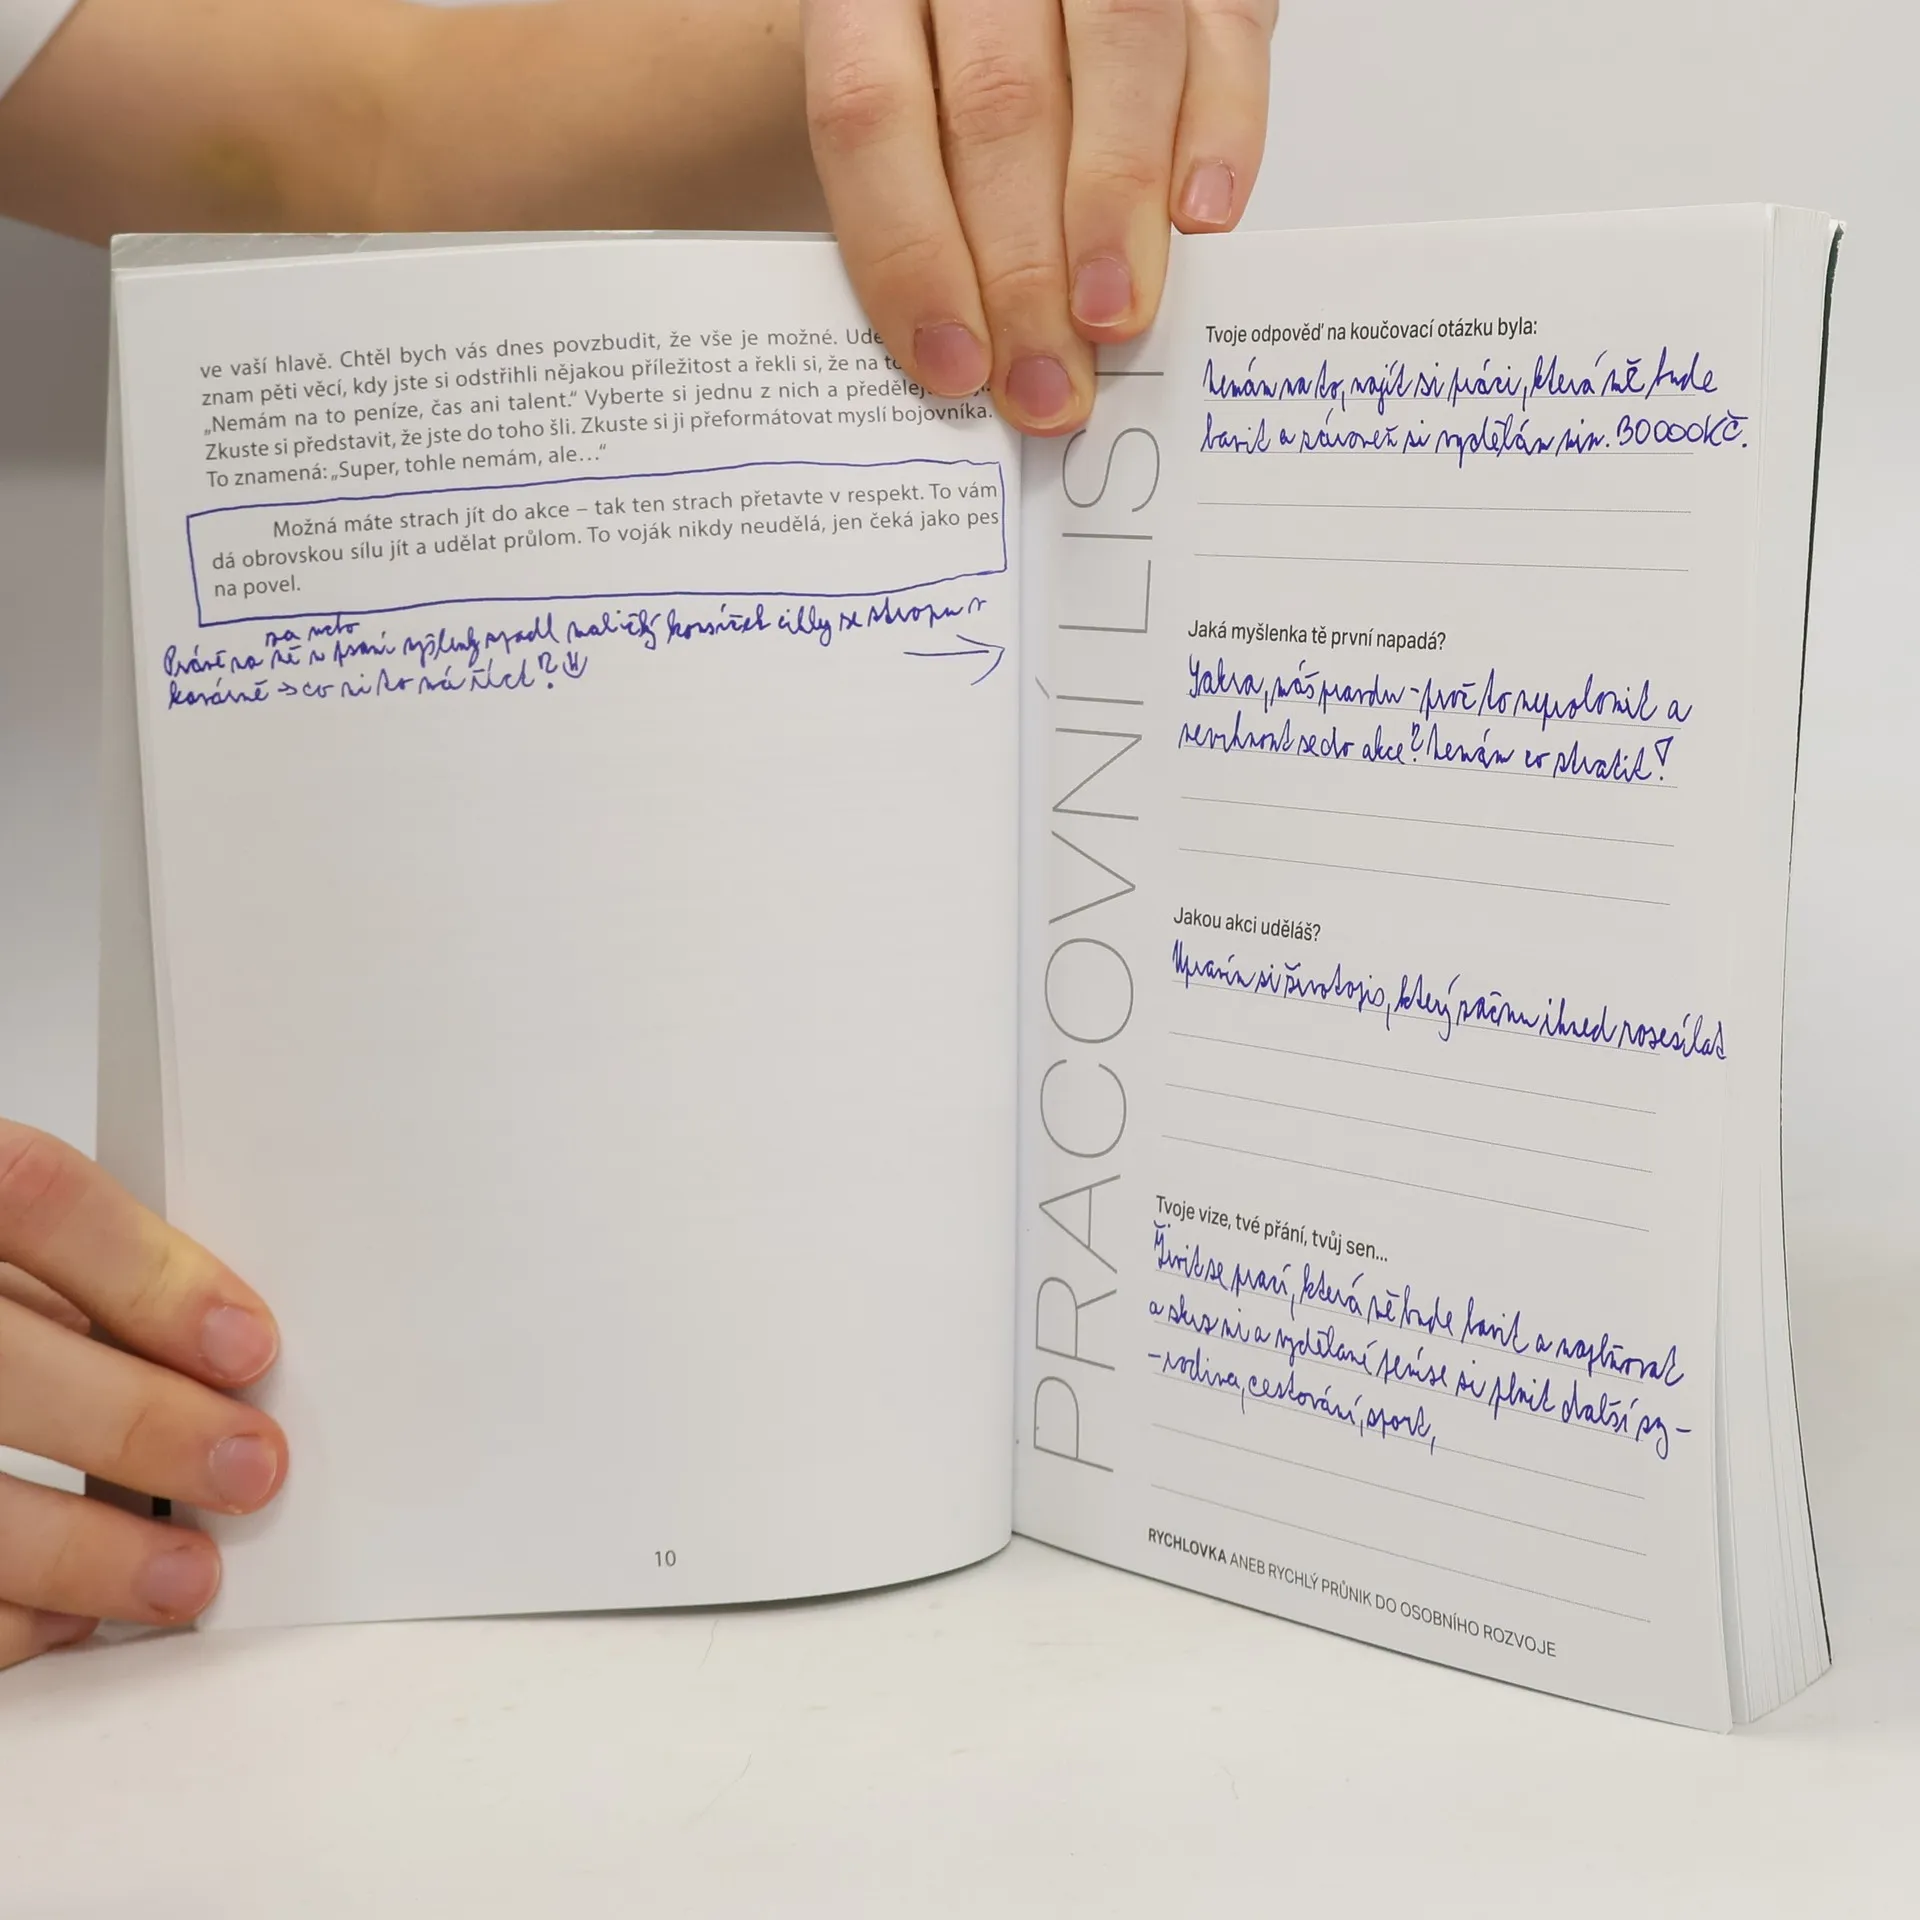 ve vaší hlavě. Chtěl bych vás dnes povzbudit, že vše je možné.
znam pěti věcí, kdy jste si odstřihli nějakou příležitost a řekli si, že na
„Nemám na to peníze, čas ani talent.“ Vyberte si jednu z nich a
Zkuste si představit, že jste do toho šli. Zkuste si ji přeformátovat myslí bojovníka.
To znamená: „Super, tohle nemám, ale...“
Možná máte strach jít do akce – tak ten strach přetavte v respekt. To vám
dá obrovskou sílu jít a udělat průlom. To voják nikdy neudělá, jen čeká jako pes
na povel.
Právě na mě v psaní myšlenky spadl maličký kousíček cihly ze stropu v
kavárně → co mi to má říct?
10
PRACOVNÍ LIST
Tvoje odpověď na koučovací otázku byla:
Nemám na to, najít si práci, která mě bude
bavit a zároveň si vydělám min. 30000Kč.
Jaká myšlenka tě první napadá?
máš pravdu - proč to neprolomit a
nevrhnout se do akce? Nemám co ztratit!
Jakou akci uděláš?
Upravím si životopis, který začnu ihned rozesílat
Tvoje vize, tvé přání, tvůj sen...
Živit se prací, která mě bude bavit a naplňovat
a skrz ni a vydělané peníze si plnit další sny -
- rodina, cestování, sport,
RYCHLOVKA ANEB RYCHLÝ PRŮNIK DO OSOBNÍHO ROZVOJE